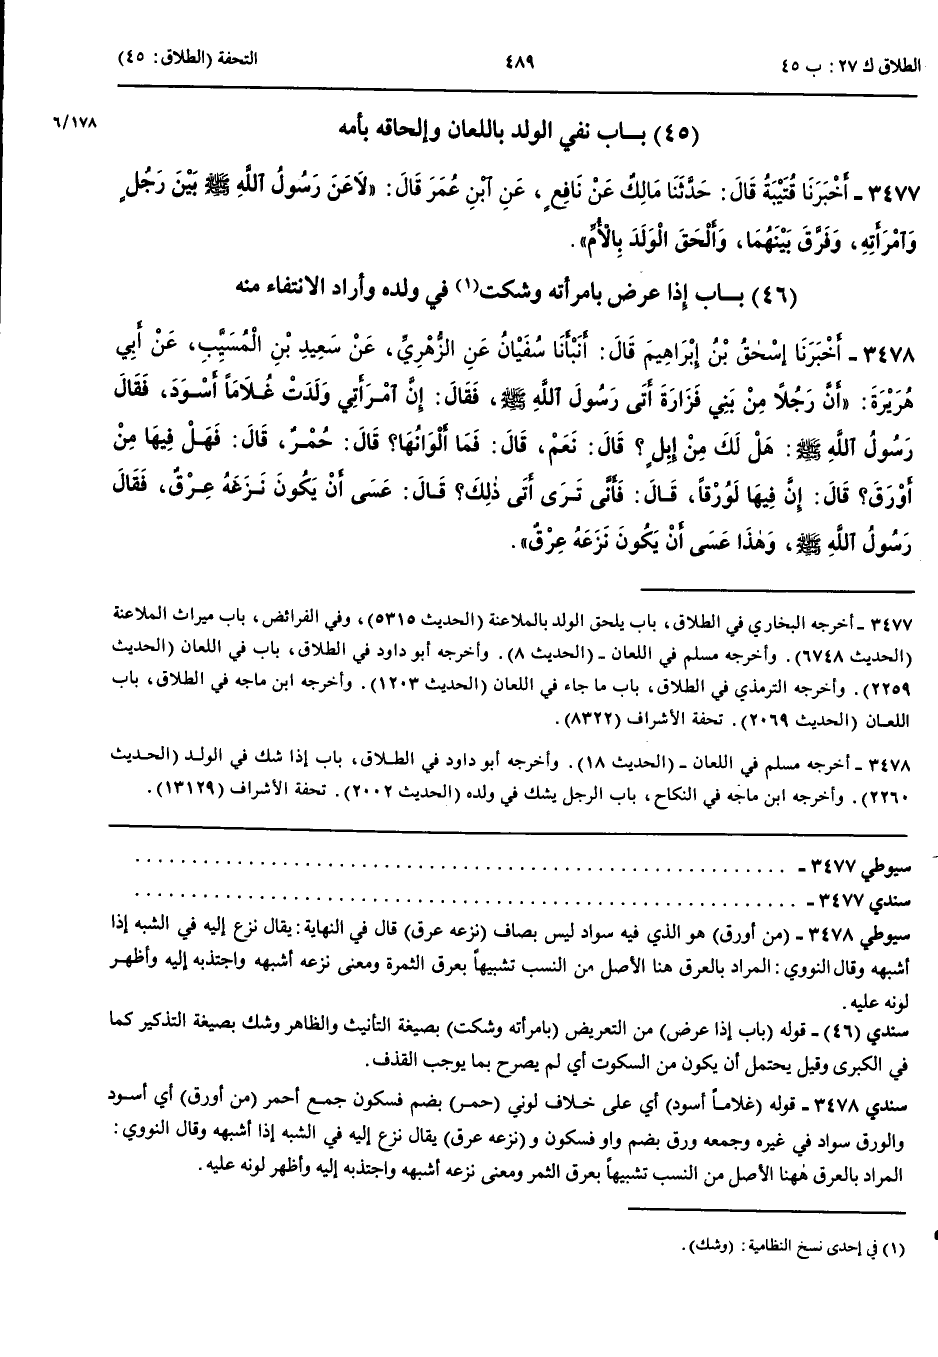 الطلاق ك ٢٧ : ب ٤٥ ٤٨٩ التحفة (الطلاق : ٤٥)
(٤٥) بـاب نفي الولد باللعان وإلحاقه بأمه ٦/١٧٨
٣٤٧٧ ـ أَخْبَرَنَا قُتَيْبَةُ قَالَ : حَدَّثَنَا مَالِكٌ عَنْ نَافِعٍ ، عَنِ ٱبْنِ عُمَرَ قَالَ : «لَاعَنَ رَسُولُ ٱللَّهِ ﷺ بَيْنَ رَجُلٍ
وَٱمْرَأَتِهِ ، وَفَرَّقَ بَيْنَهُمَا، وَأَلْحَقَ الْوَلَدَ بِالْأُمِّ» .
(٤٦) بـاب إذا عرض بامرأته وشكت(١) في ولده وأراد الانتفاء منه
٣٤٧٨ ـ أَخْبَرَنَا إِسْحٰقُ بْنُ إِبْرَاهِيمَ قَالَ : أَنْبَأَنَا سُفْيَانُ عَنِ الزُّهْرِيِّ، عَنْ سَعِيدِ بْنِ الْمُسَيَّبِ، عَنْ أَبِي
هُرَيْرَةَ : «أَنَّ رَجُلًا مِنْ بَنِي فَزَارَةَ أَتَى رَسُولَ ٱللَّهِ ﷺ ، فَقَالَ : إِنَّ ٱمْـرَأَتِي وَلَدَتْ غُـلَاماً أَسْوَدَ، فَقَالَ
رَسُولُ ٱللَّهِ ﷺ : هَلْ لَكَ مِنْ إِبِلٍ ؟ قَالَ : نَعَمْ، قَالَ : فَمَا أَلْوَانُهَا؟ قَالَ : حُمْـرٌ، قَالَ : فَهَـلْ فِيهَا مِنْ
أَوْرَقَ؟ قَالَ : إِنَّ فِيهَا لَوُرْقاً، قَـالَ : فَأَنَّى تَـرَى أَتَى ذٰلِكَ؟ قَـالَ : عَسَى أَنْ يَكُونَ نَـزَعَهُ عِـرْقٌ، فَقَالَ
رَسُولُ ٱللَّهِ ﷺ ، وَهٰذَا عَسَى أَنْ يَكُونَ نَزَعَهُ عِرْقٌ» .
٣٤٧٧ ـ أخرجه البخاري في الطلاق، باب يلحق الولد بالملاعنة (الحديث ٥٣١٥)، وفي الفرائض، باب ميراث الملاعنة
(الحديث ٦٧٤٨). وأخرجه مسلم في اللعان ـ (الحديث ٨). وأخرجه أبو داود في الطلاق، باب في اللعان (الحديث
٢٢٥٩). وأخرجه الترمذي في الطلاق، باب ما جاء في اللعان (الحديث ١٢٠٣). وأخرجه ابن ماجه في الطلاق، باب
اللعـان (الحديث ٢٠٦٩). تحفة الأشراف (٨٣٢٢).
٣٤٧٨ ـ أخرجه مسلم في اللعان ـ (الحديث ١٨). وأخرجه أبو داود في الطـلاق، باب إذا شك في الولـد (الحـديث
٢٢٦٠). وأخرجه ابن ماجه في النكاح، باب الرجل يشك في ولده (الحديث ٢٠٠٢). تحفة الأشراف (١٣١٢٩).
سيوطي ٣٤٧٧ ـ . . . . . . . . . . . . . . . . . . . . . . . . . . . . . . . . . . . . . . . . . . . . . . . . . . . . . .
سندي ٣٤٧٧ ـ . . . . . . . . . . . . . . . . . . . . . . . . . . . . . . . . . . . . . . . . . . . . . . . . . . . . . .
سيوطي ٣٤٧٨ ـ (من أورق) هو الذي فيه سواد ليس بصاف (نزعه عرق) قال في النهاية : يقال نزع إليه في الشبه إذا
أشبهه وقال النووي : المراد بالعرق هنا الأصل من النسب تشبيهاً بعرق الثمرة ومعنى نزعه أشبهه واجتذبه إليه وأظهـر
لونه عليه .
سندي (٤٦) ـ قوله (باب إذا عرض) من التعريض (بامرأته وشكت) بصيغة التأنيث والظاهر وشك بصيغة التذكير كما
في الكبرى وقيل يحتمل أن يكون من السكوت أي لم يصرح بما يوجب القذف.
سندي ٣٤٧٨ ـ قوله (غلامـاً أسود) أي على خـلاف لوني (حمـر) بضم فسكون جمـع أحمر (من أورق) أي أسـود
والورق سواد في غيره وجمعه ورق بضم واو فسكون و (نزعه عرق) يقال نزع إليه في الشبه إذا أشبهه وقال النووي :
المراد بالعرق هٰهنا الأصل من النسب تشبيهاً بعرق الثمر ومعنى نزعه أشبهه واجتذبه إليه وأظهر لونه عليه .
(١) في إحدى نسخ النظامية : (وشك) .